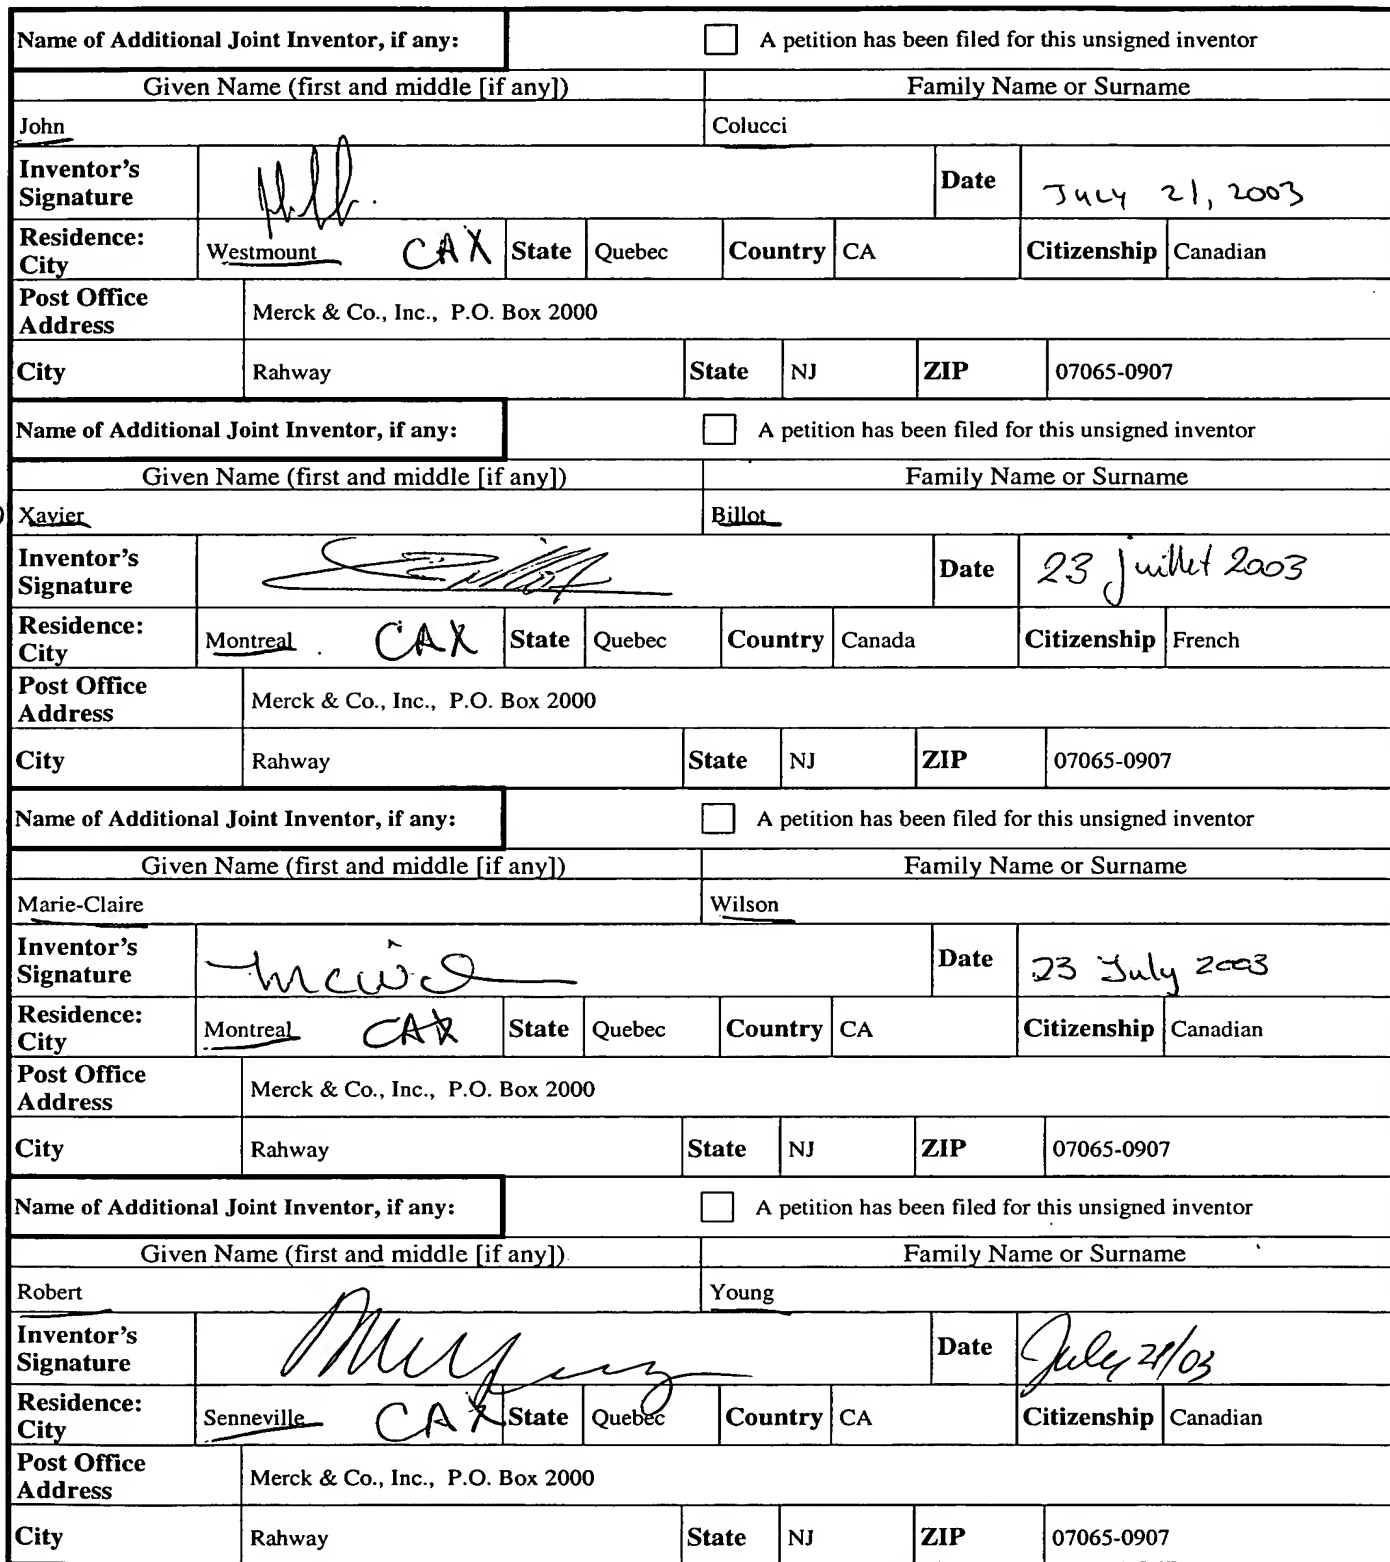 Name of Additional Joint Inventor, if any: A petition has been filed for this unsigned inventor
Given Name (first and middle [if any]) Family Name or Surname
John Colucci
Inventor's Signature Date July 21, 2003
Residence: City Westmount CAX State Quebec Country CA Citizenship Canadian
Post Office Address Merck & Co., Inc., P.O. Box 2000
City Rahway State NJ ZIP 07065-0907
Name of Additional Joint Inventor, if any: A petition has been filed for this unsigned inventor
Given Name (first and middle [if any]) Family Name or Surname
Xavier Billot
Inventor's Signature Date 23 juillet 2003
Residence: City Montreal CAX State Quebec Country Canada Citizenship French
Post Office Address Merck & Co., Inc., P.O. Box 2000
City Rahway State NJ ZIP 07065-0907
Name of Additional Joint Inventor, if any: A petition has been filed for this unsigned inventor
Given Name (first and middle [if any]) Family Name or Surname
Marie-Claire Wilson
Inventor's Signature Date 23 July 2003
Residence: City Montreal CAX State Quebec Country CA Citizenship Canadian
Post Office Address Merck & Co., Inc., P.O. Box 2000
City Rahway State NJ ZIP 07065-0907
Name of Additional Joint Inventor, if any: A petition has been filed for this unsigned inventor
Given Name (first and middle [if any]) Family Name or Surname
Robert Young
Inventor's Signature Date July 21/03
Residence: City Senneville CAX State Quebec Country CA Citizenship Canadian
Post Office Address Merck & Co., Inc., P.O. Box 2000
City Rahway State NJ ZIP 07065-0907